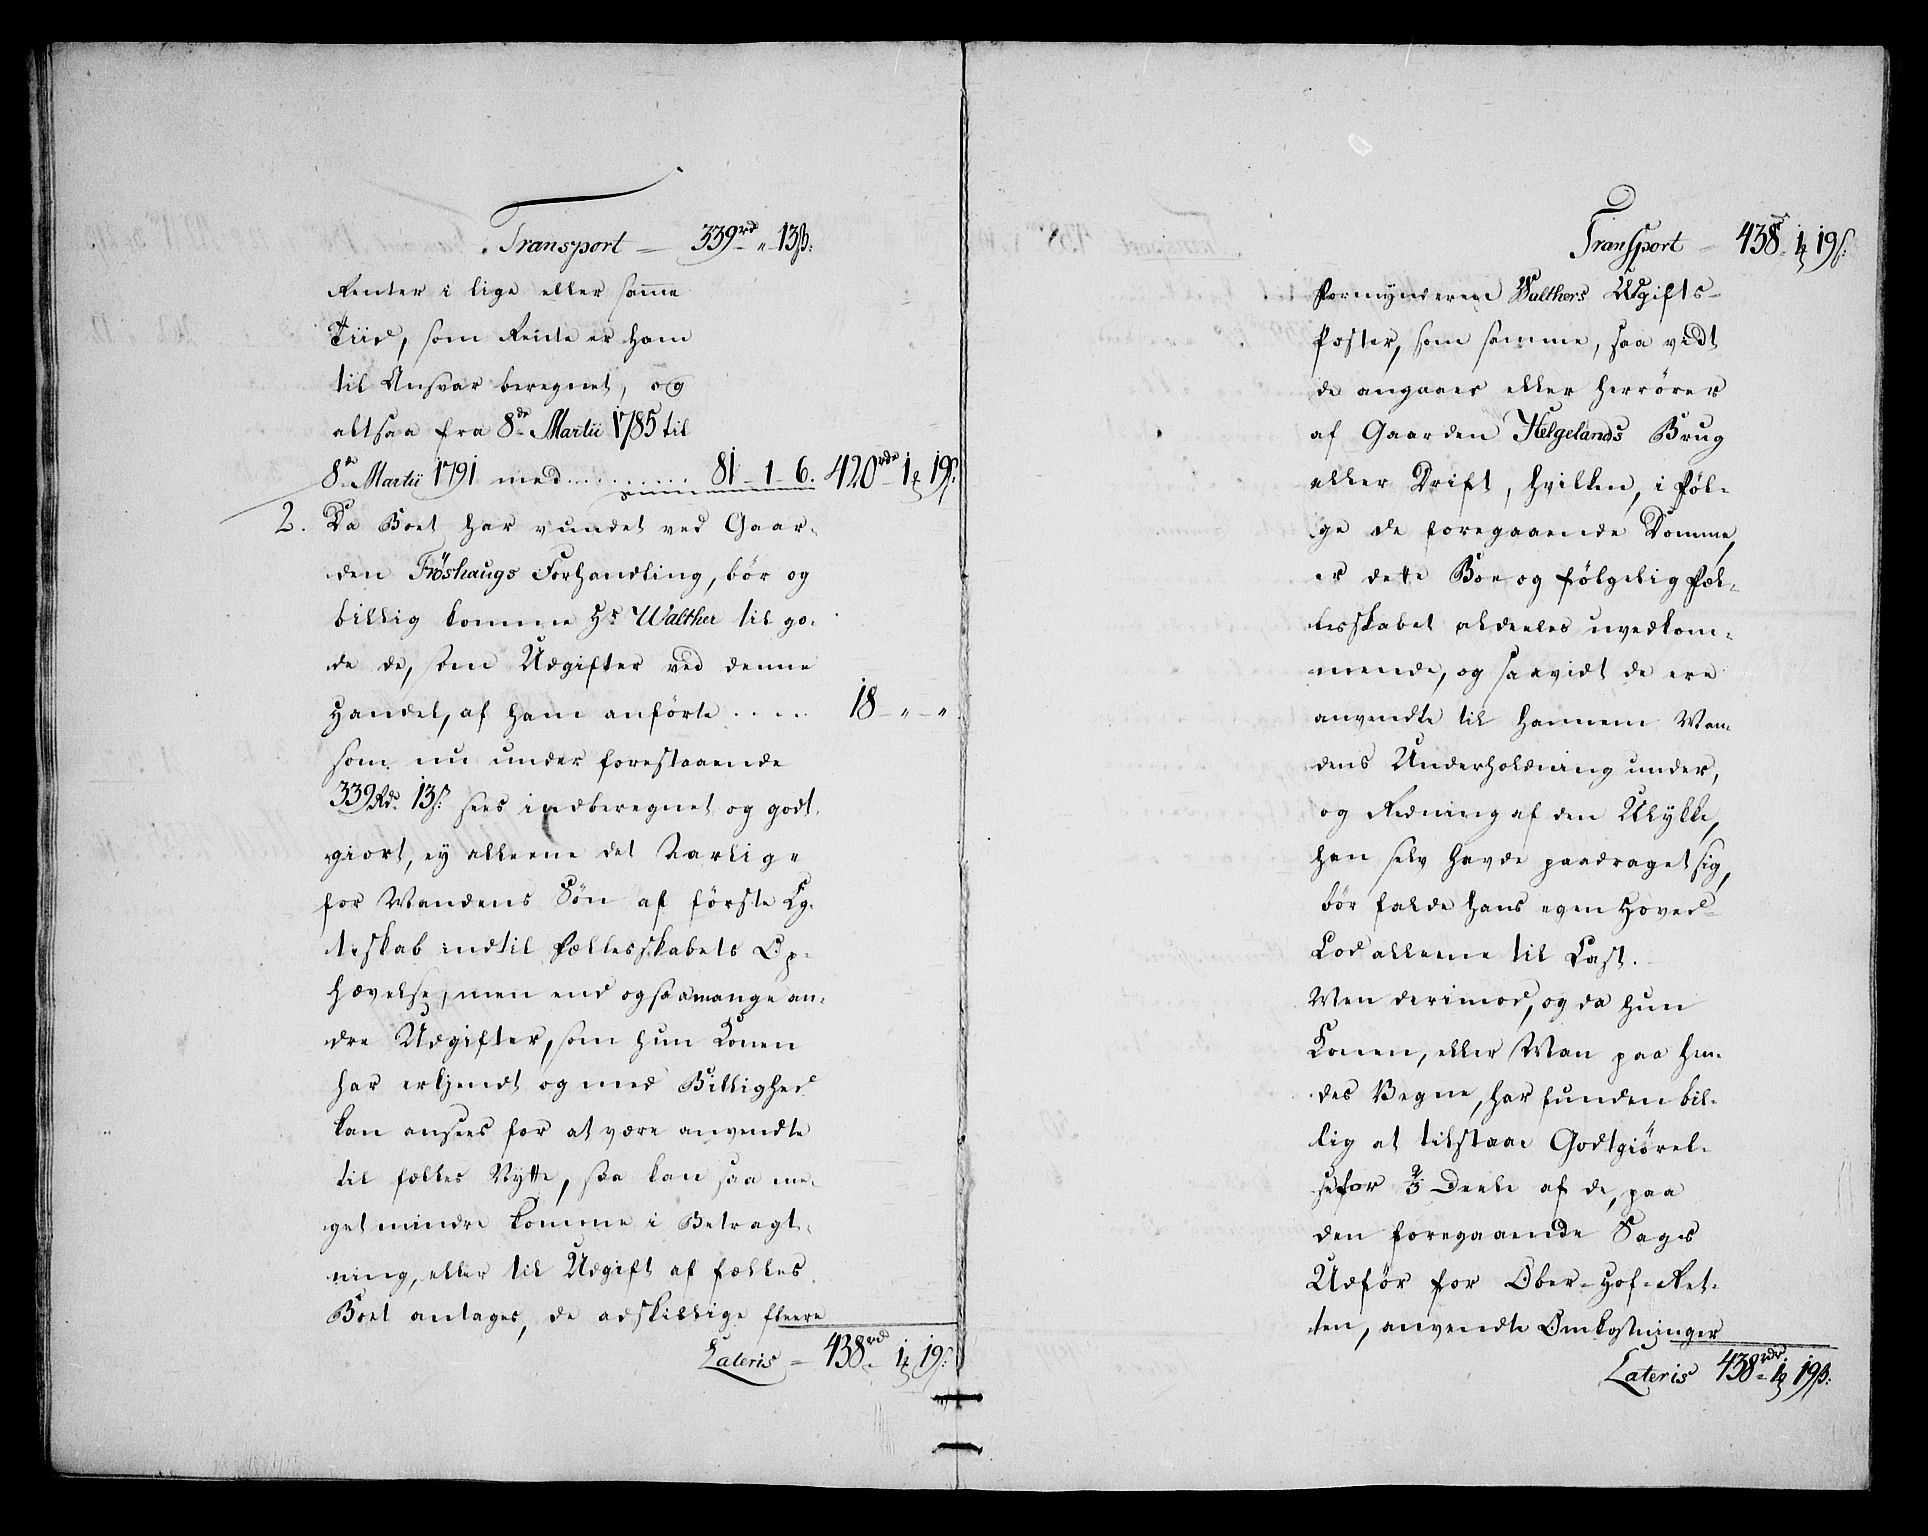 Transport — 339rd „ 13ß:
Renter i lige eller samme
Tiid, som Rente er ham
til Ansvar beregnet, og
altsaa fra 8de Martii 1785 til
8de Martii 1791 med . . . . . . . . . 81 - 1 - 6. 420rdr 1 ₰ 19ß:
2. Da Boet har vundet ved Gaar-
den Fröshaugs Forhandling, bör og
billig komme Hr Walther til go-
de de, som Udgifter ved denne
Handel, af ham anförte . . . . . 18 - „ - „
som nu under forestaaende
339Rd. 13ß: sees indberegnet og godt-
giort, ey alleene det Aarlige
for Mandens Sön af förste Eg-
teskab indtil Fællesskabets Op-
hævelse, men end og saa mange an-
dre Udgifter, som hun Konen
har erkjendt og med Billighed
kan ansees for at være anvendte
til fælles Nytte, saa kan saa me-
get mindre komme i Betragt-
ning, eller til Udgift af fælles
Boet antages, de adskillige fleere
Lateris — 438rd 1 ₰ 19ß:
Transport — 438r 1 ₰ 19ß:
Formynderen Walthers Udgifts-
Poster, som samme, saa vidt
de angaaer eller herrörer
af Gaarden Helgelands Brug
eller Drift, hvilken, i Föl-
ge de foregaaende Domme,
er dette Boe og fölgelig Fæl-
lesskabet aldeeles uvedkom-
mende, og saavidt de ere
anvendte til hannem Man-
dens Underholdning under,
og Redning af den Ulykke,
han selv havde paadraget sig,
bör falde hans egen Hoved-
Lod alleene til Last.
Men derimod, og da hun
Konen, eller Man paa hen-
des Vegne, har funden bil-
lig at tilstaae Godtgiörel-
se for 2/3 Deele af de, paa
den foregaaende Sags
Udför for Ober-Hof-Ret-
ten, anvendte Omkostninger
Lateris 438rdr 1 ₰ 19ß: